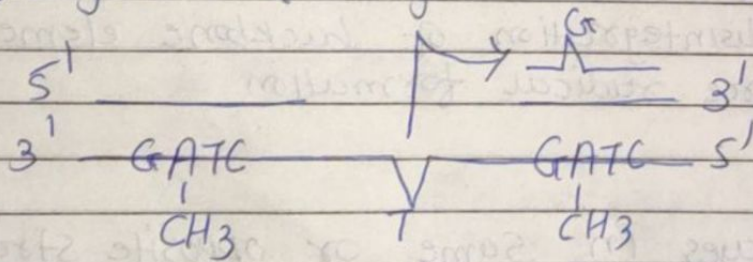 G
5' 3'
3' GATC GATC 5'
CH3 T CH3